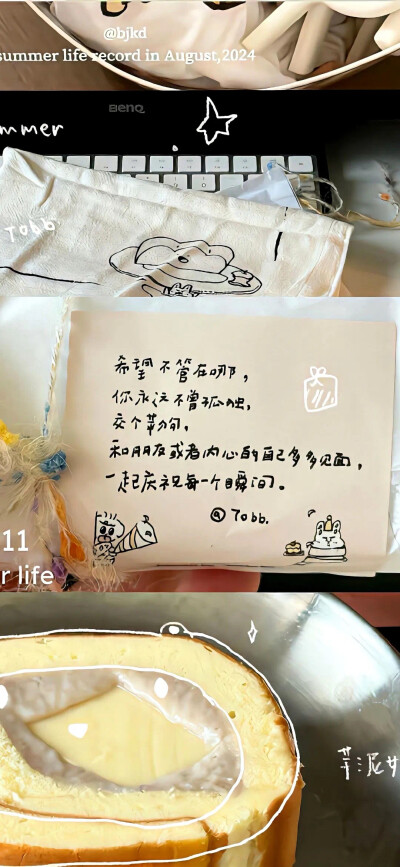 @bjkd
summer life record in August,2024
BenQ
mmer
Tobb
希望不管在哪,
你永远不曾孤独,
交个筆友吧,
和朋友或者内心的自己多多见面,
一起庆祝每一个瞬间。
@Tobb.
11
r life
芋泥